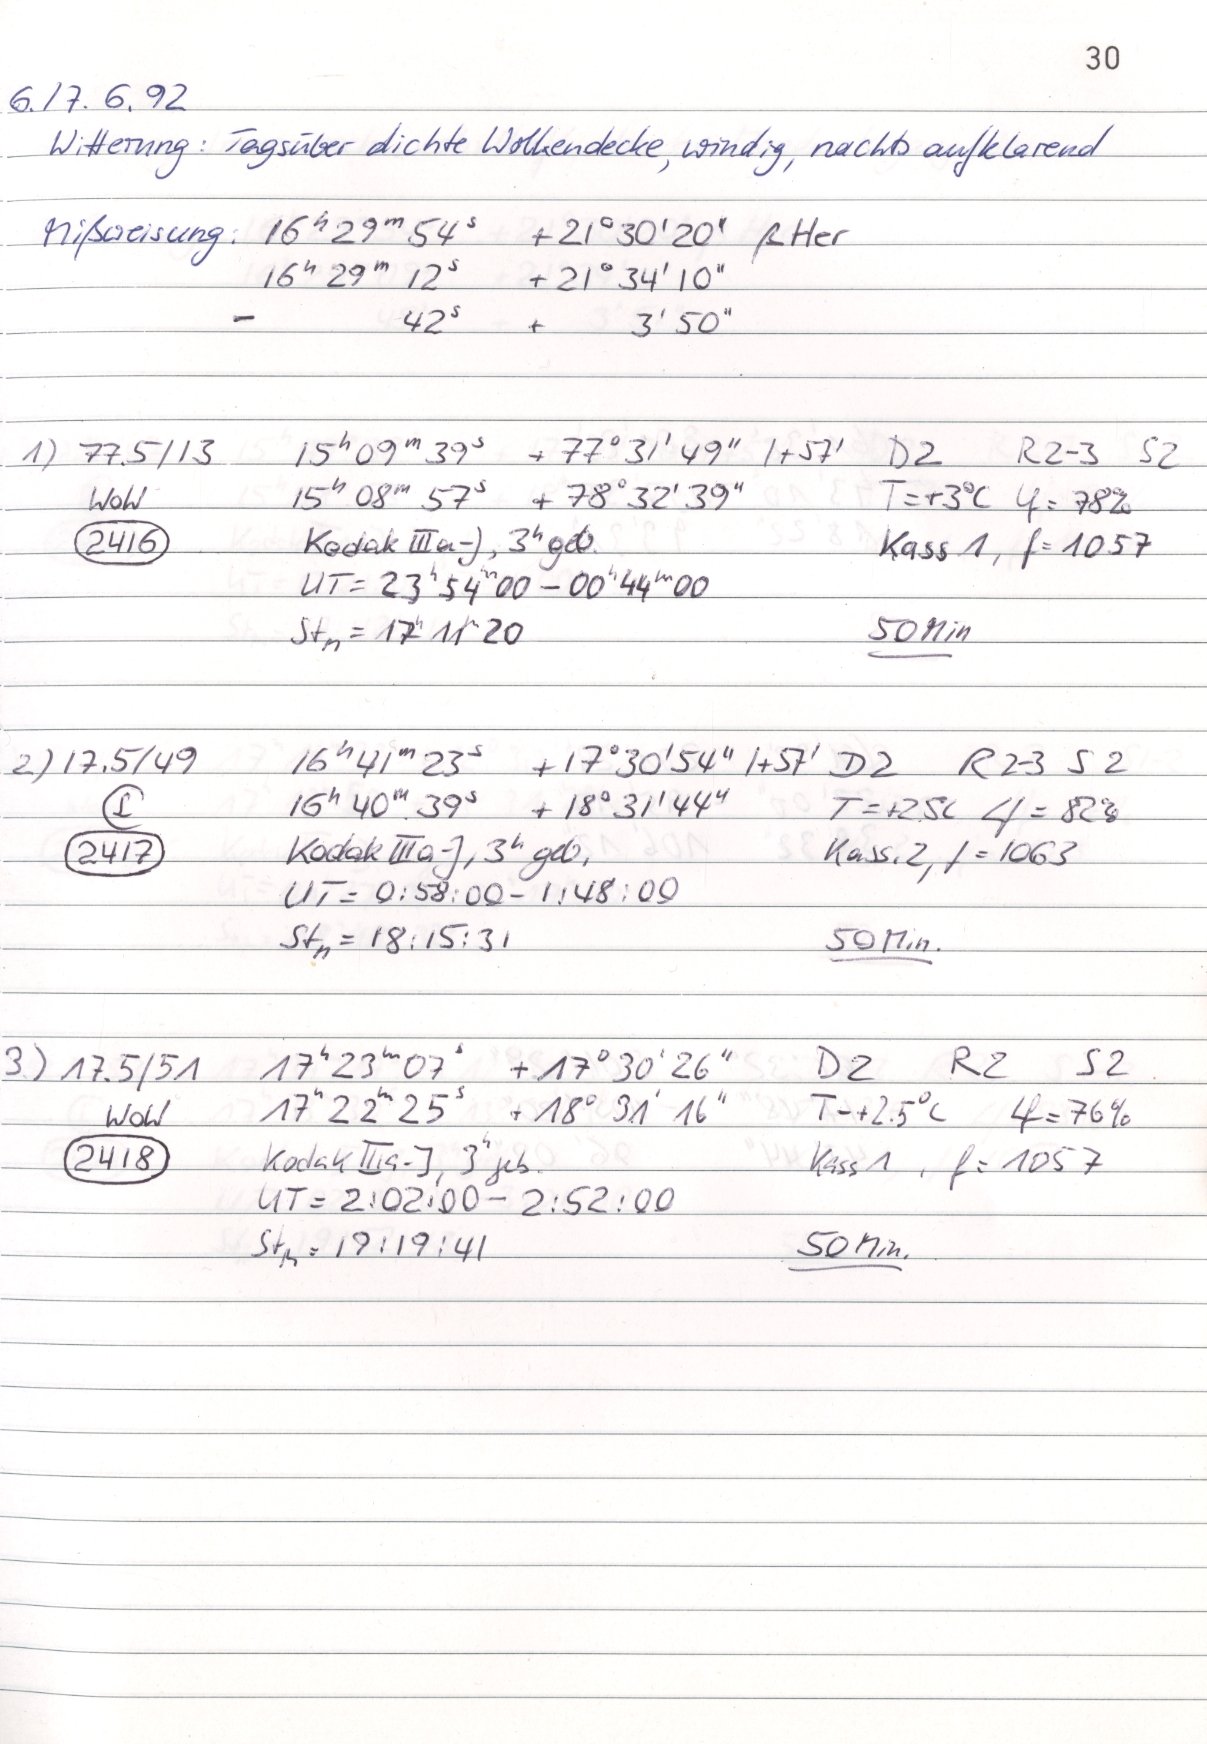 30
6./7. 6. 92
Witterung: Tagsüber dichte Wolkendecke, windig, nachts aufklarend
Mißweisung: 16ʰ 29ᵐ 54ˢ +21° 30' 20" β Her
16ʰ 29ᵐ 12ˢ +21° 34' 10"
- 42ˢ + 3' 50"
1) 77.5/13 15ʰ 09ᵐ 39ˢ +77° 31' 49" /+57' D2 R2-3 S2
WoW 15ʰ 08ᵐ 57ˢ +78° 32' 39" T=+3°C φ=78%
2416 Kodak IIIa-J, 3ʰ geb. Kass 1, f=1057
UT= 23ʰ 54ᵐ 00 – 00ʰ 44ᵐ 00
Stₙ = 17ʰ 11ᵐ 20 50 Min
2) 17.5/49 16ʰ 41ᵐ 23ˢ +17° 30' 54" /+57' D2 R2-3 S2
16ʰ 40ᵐ 39ˢ +18° 31' 44" T=+2.5C φ=82%
2417 Kodak IIIa-J, 3ʰ geb. Kass. 2, f=1063
UT= 0:58:00 – 1:48:00
Stₙ = 18:15:31 50 Min.
3.) 17.5/51 17ʰ 23ᵐ 07ˢ +17° 30' 26" D2 R2 S2
WoW 17ʰ 22ᵐ 25ˢ +18° 31' 16" T=+2.5°C φ=76%
2418 Kodak IIIa-J, 3ʰ geb. Kass 1, f=1057
UT= 2:02:00 – 2:52:00
Stₙ = 19:19:41 50 Min.